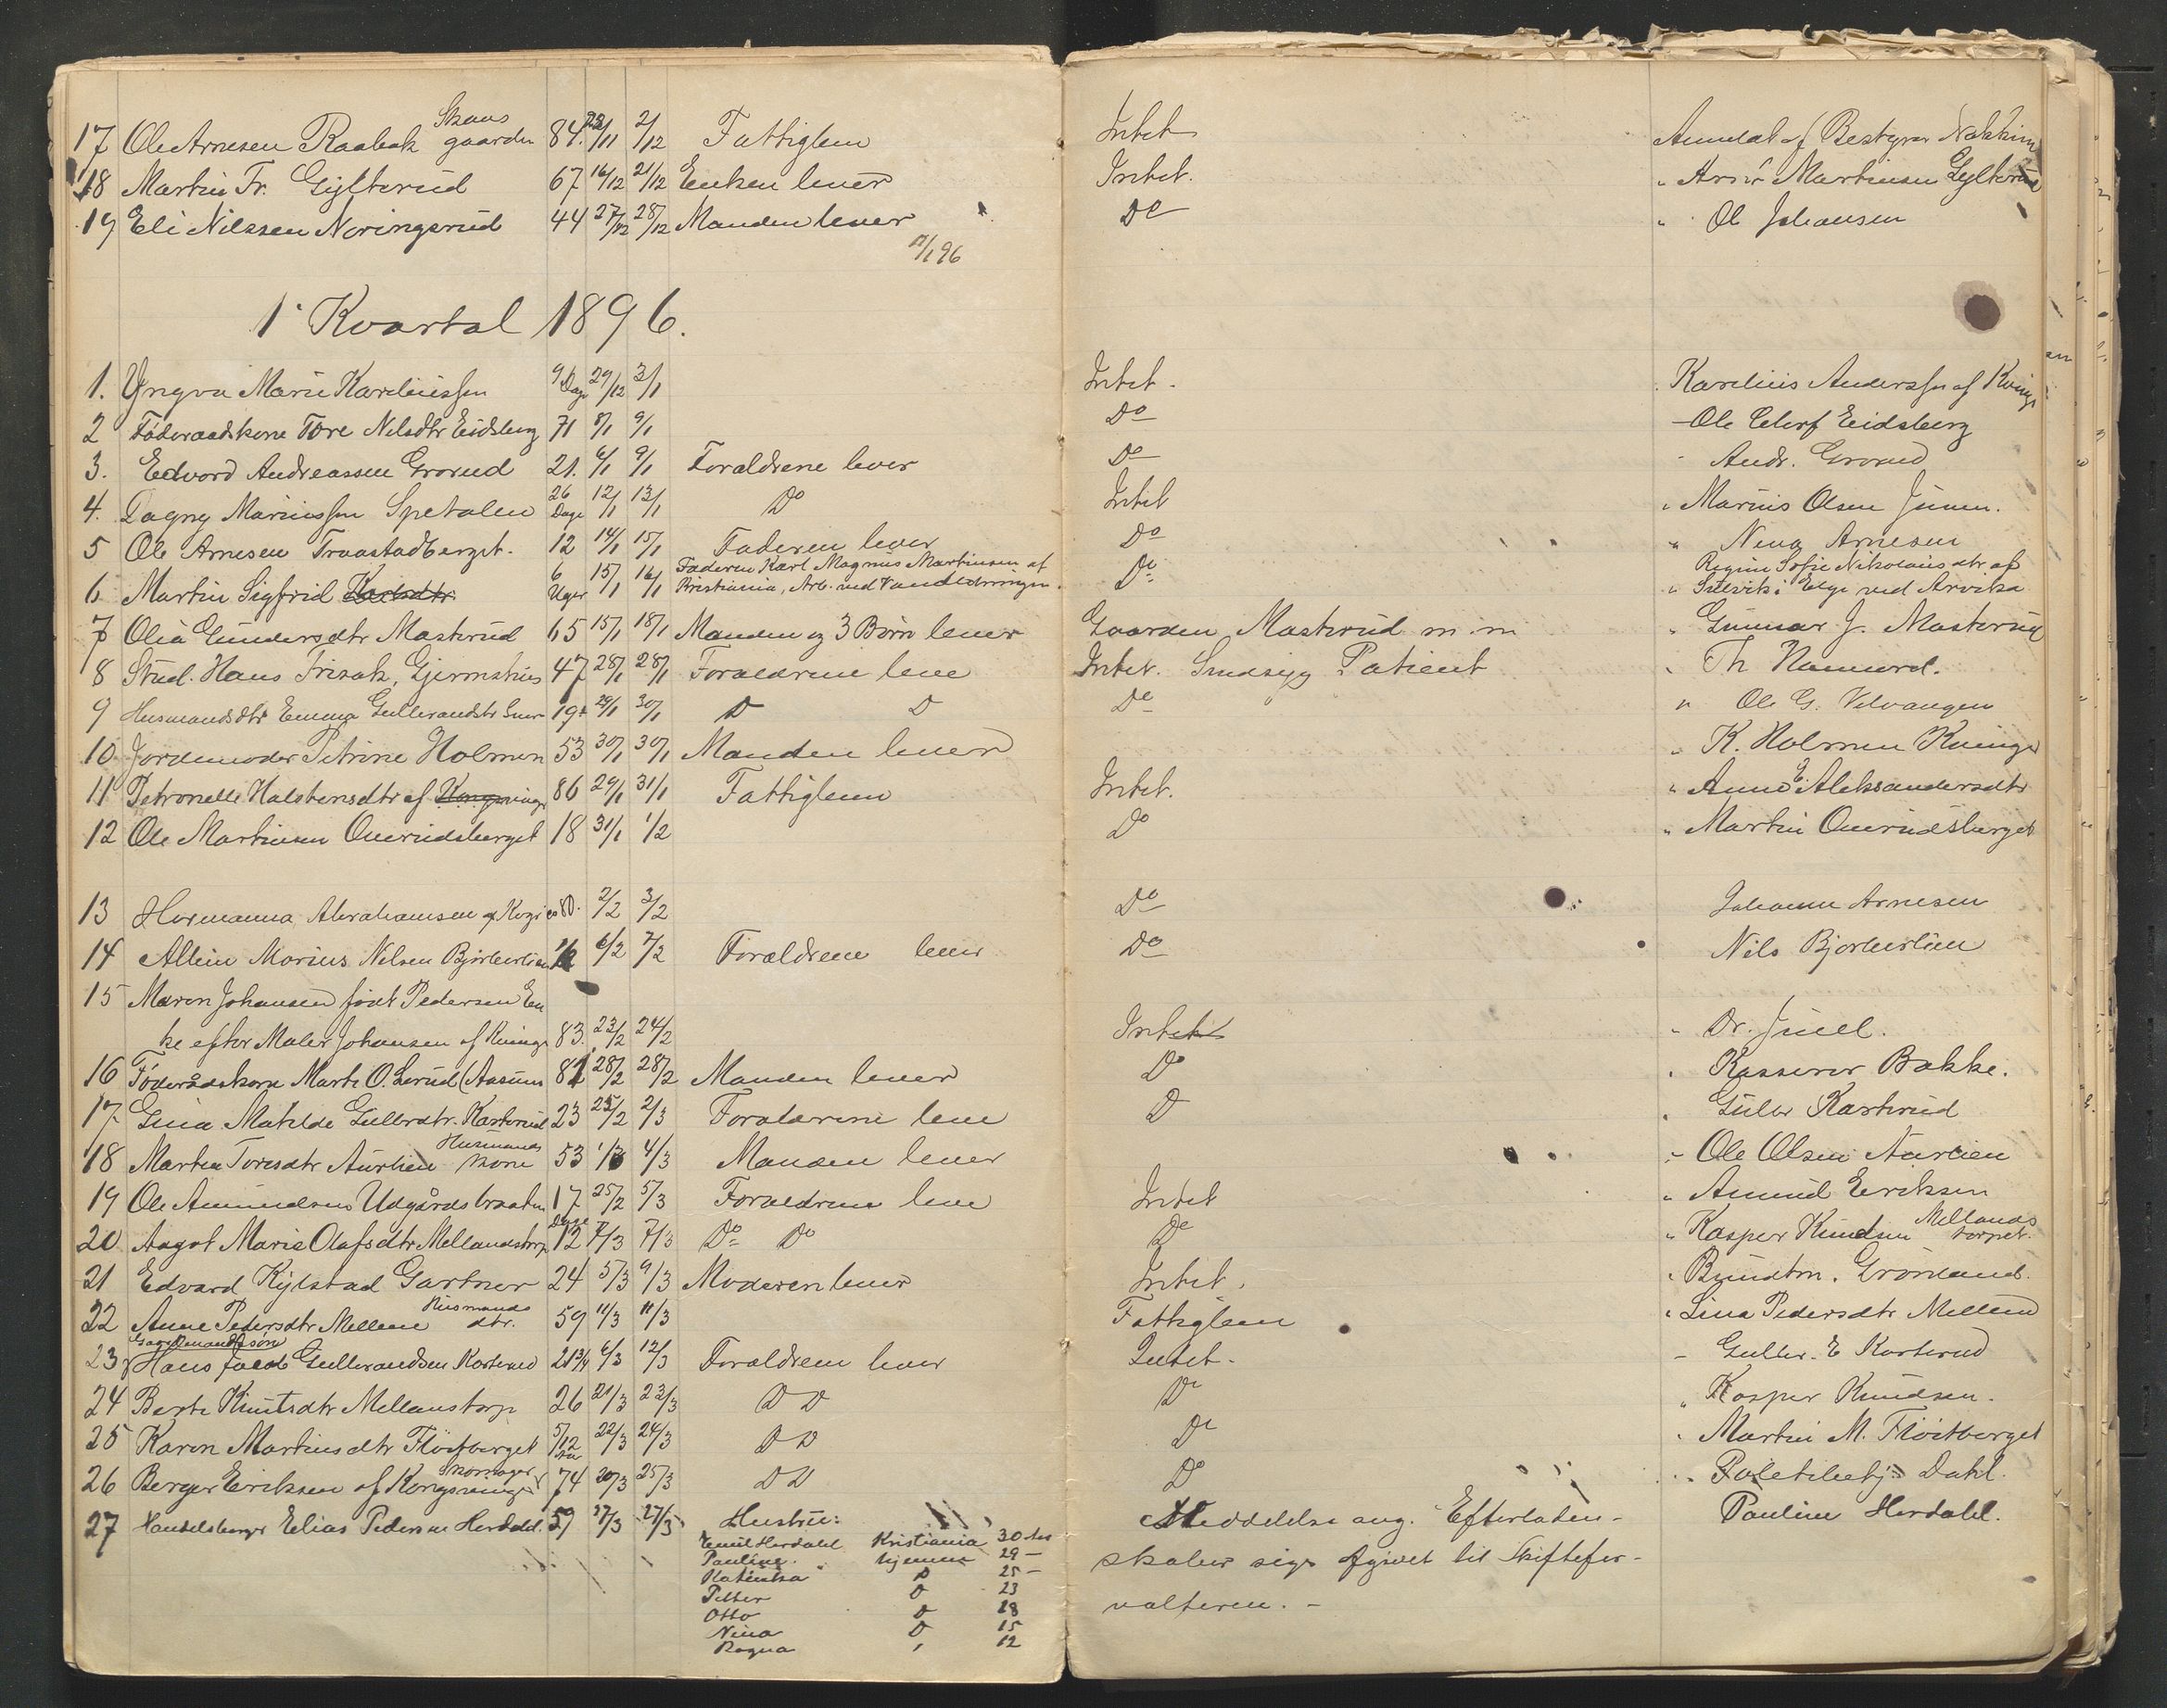 17 Ole Arnesen Raabak Skansgaarden 84. 28/11 2/12 Fattiglem Intet Anmeldt af Bestyrer Nakkim
18 Martin Fr. Gylterud 67 16/12 21/12 Enken lever Intet. " Martinsen Gylterud
19 Eli Nilssen Noringsrud 44 27/12 28/12 Manden lever Do " Ol Johansen
11/1 96
1' Kvartal 1896.
1. Yngva Marie Kareliussen 9 Dage 29/12 3/1 Intet. Karelius Anderssen af Kvinger
2 Föderaadskone Tore Nilsdtr Eidsberg 71 8/1 9/1 Do Ole Elerf Eidsberg
3. Edvard Andreassen Grorud 21. 6/1 9/1 Forældrene lever Do Andr. Grorud
4. Dagny Mariussen Spetalen 26 Dage 12/1 13/1 Do Intet " Marius Olsen
5 Ole Arnesen Traastadberget. 12 14/1 15/1 Faderen lever Do " Arnesen
6 Martin Sigfrid Karlsdtr. 6 Uger 15/1 16/1 Faderen Karl Magnus Martinsen af Kristiania, Arb. ved Vandledningen. Do Regine Sofie Nikolaisdtr af Sulvik i Elge ved Arvika
7 Olia Gundersdtr Masterud 65 15/1 18/1 Manden og 3 Börn lever Gaarden Masterud m. m " Gunnar J. Masterud
8 Stud. Hans Frisak, Gjermshus 47 28/1 28/1 Forældrene leve Intet. Sindsyg Patient " Th
9 Husmandsdtr Emma Gullerandsdtr 19 29/1 30/1 D D Do " Ole G. Velvangen
10 Jordemoder Petrine Holmen 53 30/1 30/1 Manden lever " K. Holmen Kvinger
11 Petronelle Halstensdtr af Kongsvinger 86 29/1 31/1 Fattiglem Intet. " Anne E. Aleksandersdtr
12 Ole Martinsen Overudsberget 18 31/1 1/2 Do " Martin Overudsberget
13 Hermanna Abrahamsen af 80. 2/2 3/2 Do Johanne Arnesen
14 Marius Nilsen Björkerlien 6/2 7/2 Forældrene lever Do Nils Bjørkerlien
15 Maren Johansen född Pedersen En
ke efter Maler Johansen af Kvinger 83. 23/2 24/2 Intet " Dr. Juell.
16 Föderådskone Marte O. Lerud (Aasum 82 28/2 28/2 Manden lever Do " Kasserer Bakke.
17. Gina Matilde Gullerdtr. Karterud 23 25/2 2/3 Forældrene leve D " Guller Karterud
18 Martea Toresdtr Aurlien Husmands kone 53 1/3 4/3 Manden lever " Ole Olsen Aurlien
19 Ole Amundsen Udgårdsbraaten 17 25/2 5/3 Forældrene leve Intet " Amund Eriksen
20 Aagot Marie Olafsdtr Mellandstorp Dage 12 7/3 7/3 Do Do Do " Kasper Knudsen Mellands torpet.
21 Edvard Kylstad Gartner 24 5/3 9/3 Moderen lever Intet. " Grönland.
22 Anne Pedersdtr Mellem Husmands dtr. 59 11/3 11/3 Fattiglem " Lina Pedersdtr Mellem
23 Gaardmandssön Hans Jacob Gullerandsen Karterud 21 3/4 6/3 12/3 Forældrene lever Intet. " Guller. E Karterud
24 Berte Knutsdtr Mellanstorp 26 21/3 23/3 D D Do " Kasper Knudsen.
25 Karen Martinsdtr Flöitberget 5/12 Aar 22/3 24/3 D D Do " Martin M. Flöitberget
26 Berger Eriksen af Kongsvinger Skomager 74 20/3 25/3 D D Do " Politibetj: Dahl.
27 Handelsborger Elias Pedersen Herdahl. 59 27/3 27/3 Hustru: Meddelelse ang. Efterladen- Pauline Herdahl.
Emil Herdahl Kristiania 30 Aar
Pauline " hjemme 29 - skaber siges afgivet til Skiftefor-
Katinka D 25 -
Petter D 23
Otto D 18 valteren. -
Nina D 15
Ragna " 12